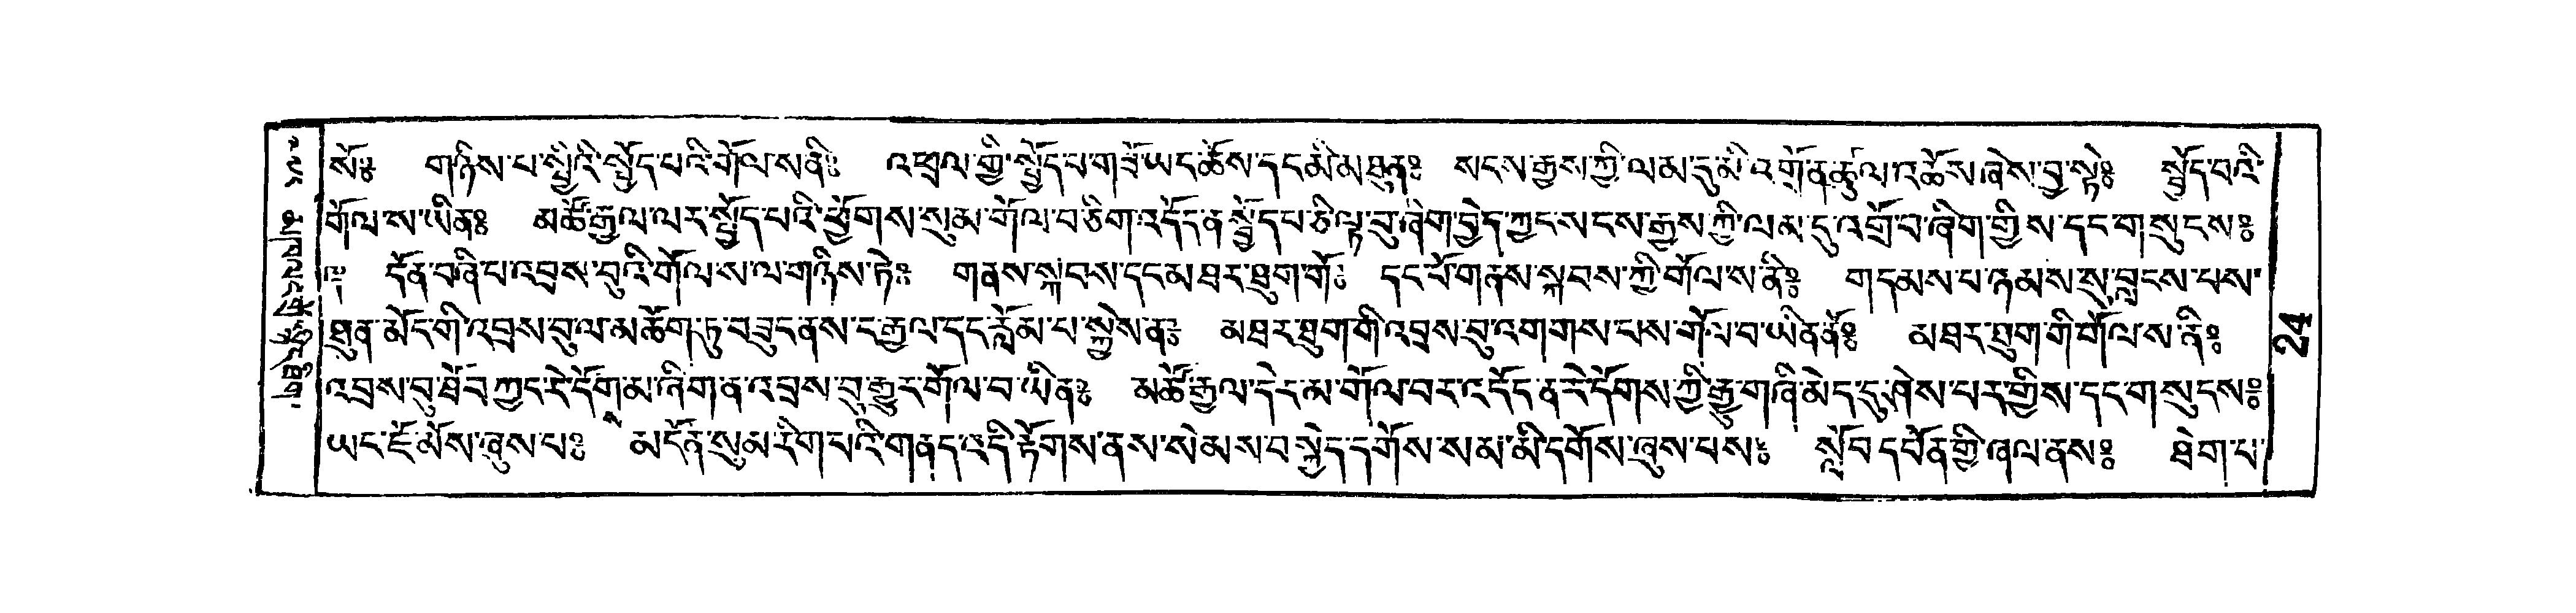 སོ༔ གཉིས་པ་སྤྱིའི་སྤྱོད་པའི་གོལ་ས་ནི༔ འཕྲལ་གྱི་སྤྱོད་པ་གཟོ་ཡང་ཆོས་དང་མི་མཐུན༔ སངས་རྒྱས་ཀྱི་ལམ་དུ་མི་འགྲོ་ན་ཚུལ་འཆོས་ཞེས་བྱ་སྟེ༔ སྤྱོད་པའི་
གོལ་ས་ཡིན༔ མཚོ་རྒྱལ་ལར་སྤྱོད་པའི་ཕྱོགས་སུ་མ་གོལ་བ་ཅིག་འདོད་ན་སྤྱོད་པ་ཅི་ལྟ་བུ་ཞིག་བྱེད་ཀྱང་སངས་རྒྱས་ཀྱི་ལམ་དུ་འགྲོ་བ་ཞིག་གྱིས་དང་གསུངས༔
༈ དོན་བཞི་པ་འབྲས་བུའི་གོལ་ས་ལ་གཉིས་ཏེ༔ གནས་སྐབས་དང་མཐར་ཐུག་གོ༔ དང་པོ་གནས་སྐབས་ཀྱི་གོལ་ས་ནི༔ གདམས་པ་ཉམས་སུ་བླངས་པས་
ཐུན་མོང་གི་འབྲས་བུ་ལ་མཆོག་ཏུ་བཟུང་ནས་ང་རྒྱལ་དང་རློམ་པ་སྐྱེས་ན༔ མཐར་ཐུག་གི་འབྲས་བུ་འགགས་པས་གོལ་བ་ཡིན་ནོ༔ མཐར་ཐུག་གི་གོལ་ས་ནི༔
འབྲས་བུ་ཐོབ་ཀྱང་རེ་དོགས་མ་ཞིག་ན་འབྲས་བུ་རྒྱུར་གོལ་བ་ཡིན༔ མཚོ་རྒྱལ་དེར་མ་གོལ་བར་འདོད་ན་རེ་དོགས་ཀྱི་རྒྱུ་གཞི་མེད་དུ་ཤེས་པར་གྱིས་དང་གསུངས༔
ཡང་ཇོ་མོས་ཞུས་པ༔ མདོ་ནི་སུམ་རིག་པའི་གནད་འདི་རྟོགས་ནས་སེམས་བསྐྱེད་དགོས་སམ་མི་དགོས་ཞུས་པས༔ སློབ་དཔོན་གྱི་ཞལ་ནས༔ ཐེག་པ་